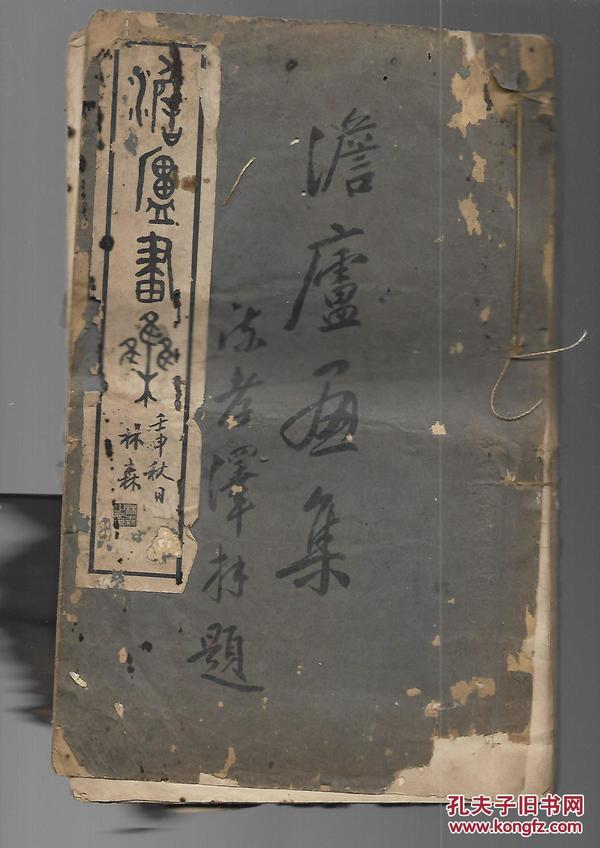 澹廬畫集
壬申秋日
林森
澹廬画集
題
孔夫子旧书网
www.kongfz.com